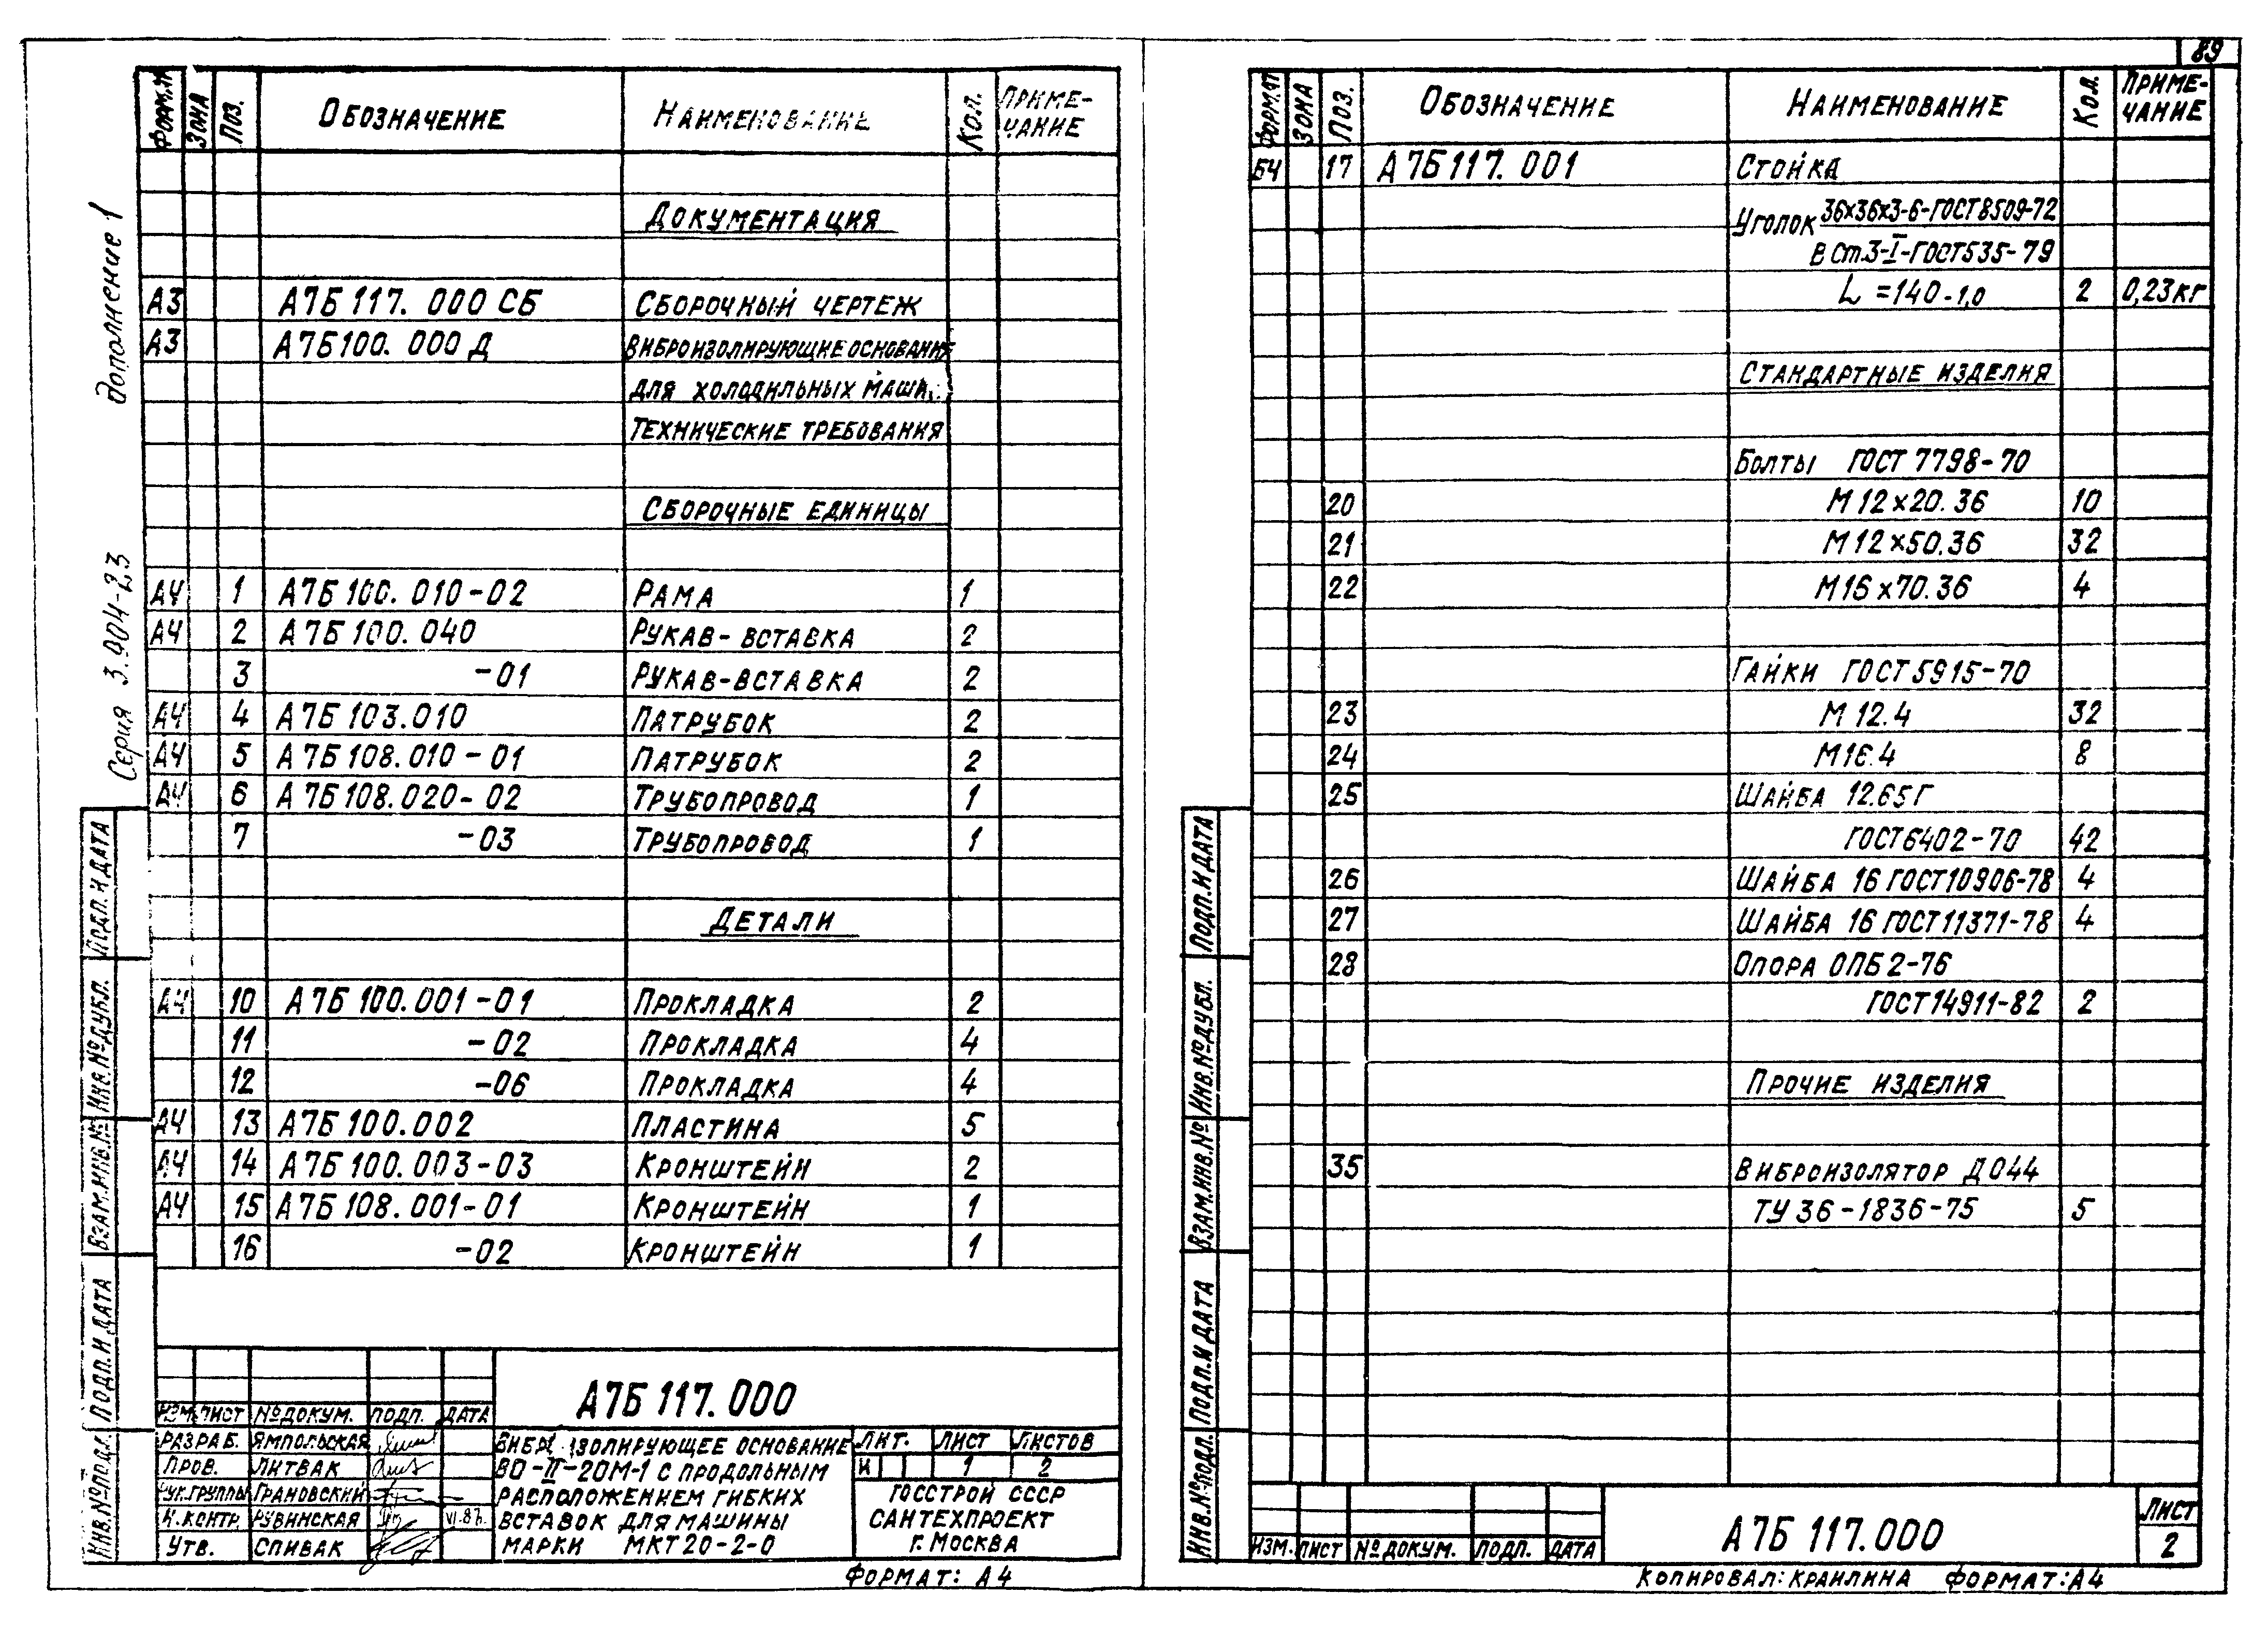 89
Дополнение 1
Серия 3.904-23
Формат Зона Поз. Обозначение Наименование Кол. Примечание
Документация
А3 А7Б 117.000 СБ Сборочный чертеж
А3 А7Б100.000 Д Виброизолирующие основания
для холодильных машин.
Технические требования
Сборочные единицы
А4 1 А7Б 100.010-02 Рама 1
А4 2 А7Б 100.040 Рукав-вставка 2
3 -01 Рукав-вставка 2
А4 4 А7Б 103.010 Патрубок 2
А4 5 А7Б 108.010-01 Патрубок 2
А4 6 А7Б 108.020-02 Трубопровод 1
7 -03 Трубопровод 1
Детали
А4 10 А7Б 100.001-01 Прокладка 2
11 -02 Прокладка 4
12 -06 Прокладка 4
А4 13 А7Б 100.002 Пластина 5
А4 14 А7Б 100.003-03 Кронштейн 2
А4 15 А7Б 108.001-01 Кронштейн 1
16 -02 Кронштейн 1
Подп. и дата
Инв. № дубл.
Взам. инв. №
Подп. и дата
Инв. № подл.
А7Б 117.000
Изм. Лист № докум. Подп. Дата
Разраб. Ямпольская
Пров. Литвак
Рук. группы Грановский
Н. контр. Рувинская VI.87г.
Утв. Спивак
Виброизолирующее основание
ВО-II-20М-1 с продольным
расположением гибких
вставок для машины
марки МКТ 20-2-0
Лит. Лист Листов
И 1 2
Госстрой СССР
Сантехпроект
г. Москва
Формат: А4
Формат Зона Поз. Обозначение Наименование Кол. Примечание
БЧ 17 А7Б117.001 Стойка
Уголок 36х36х3-6-ГОСТ 8509-72
В Ст.3-I-ГОСТ535-79
L=140-1,0 2 0,23кг
Стандартные изделия
Болты ГОСТ 7798-70
20 М12х20.36 10
21 М12х50.36 32
22 М16х70.36 4
Гайки ГОСТ 5915-70
23 М12.4 32
24 М16.4 8
25 Шайба 12.65Г
ГОСТ6402-70 42
26 Шайба 16 ГОСТ10906-78 4
27 Шайба 16 ГОСТ11371-78 4
28 Опора ОПБ2-76
ГОСТ14911-82 2
Прочие изделия
35 Виброизолятор ДО44
ТУ 36-1836-75 5
Подп. и дата
Инв. № дубл.
Взам. инв. №
Подп. и дата
Инв. № подл.
Изм. Лист № докум. Подп. Дата
А7Б 117.000
Лист
2
Копировал: Краилина Формат: А4